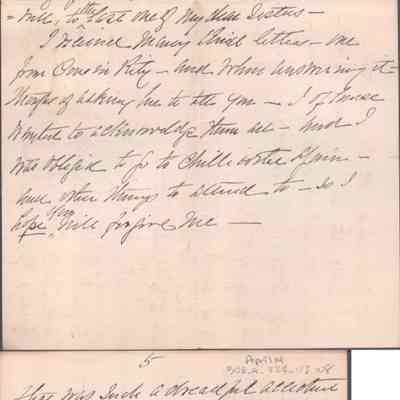 - will, to the last one of my dear Sisters -
I received many kind letters - one
from Cousin Kity - and when answering it -
thought of asking her to tell you - I of course
wanted to acknowledge them all - and I
was obliged to go to Chillicothe again -
and other things to attend to - so I
hope you will forgive me -
5
that was such a dreadful accident